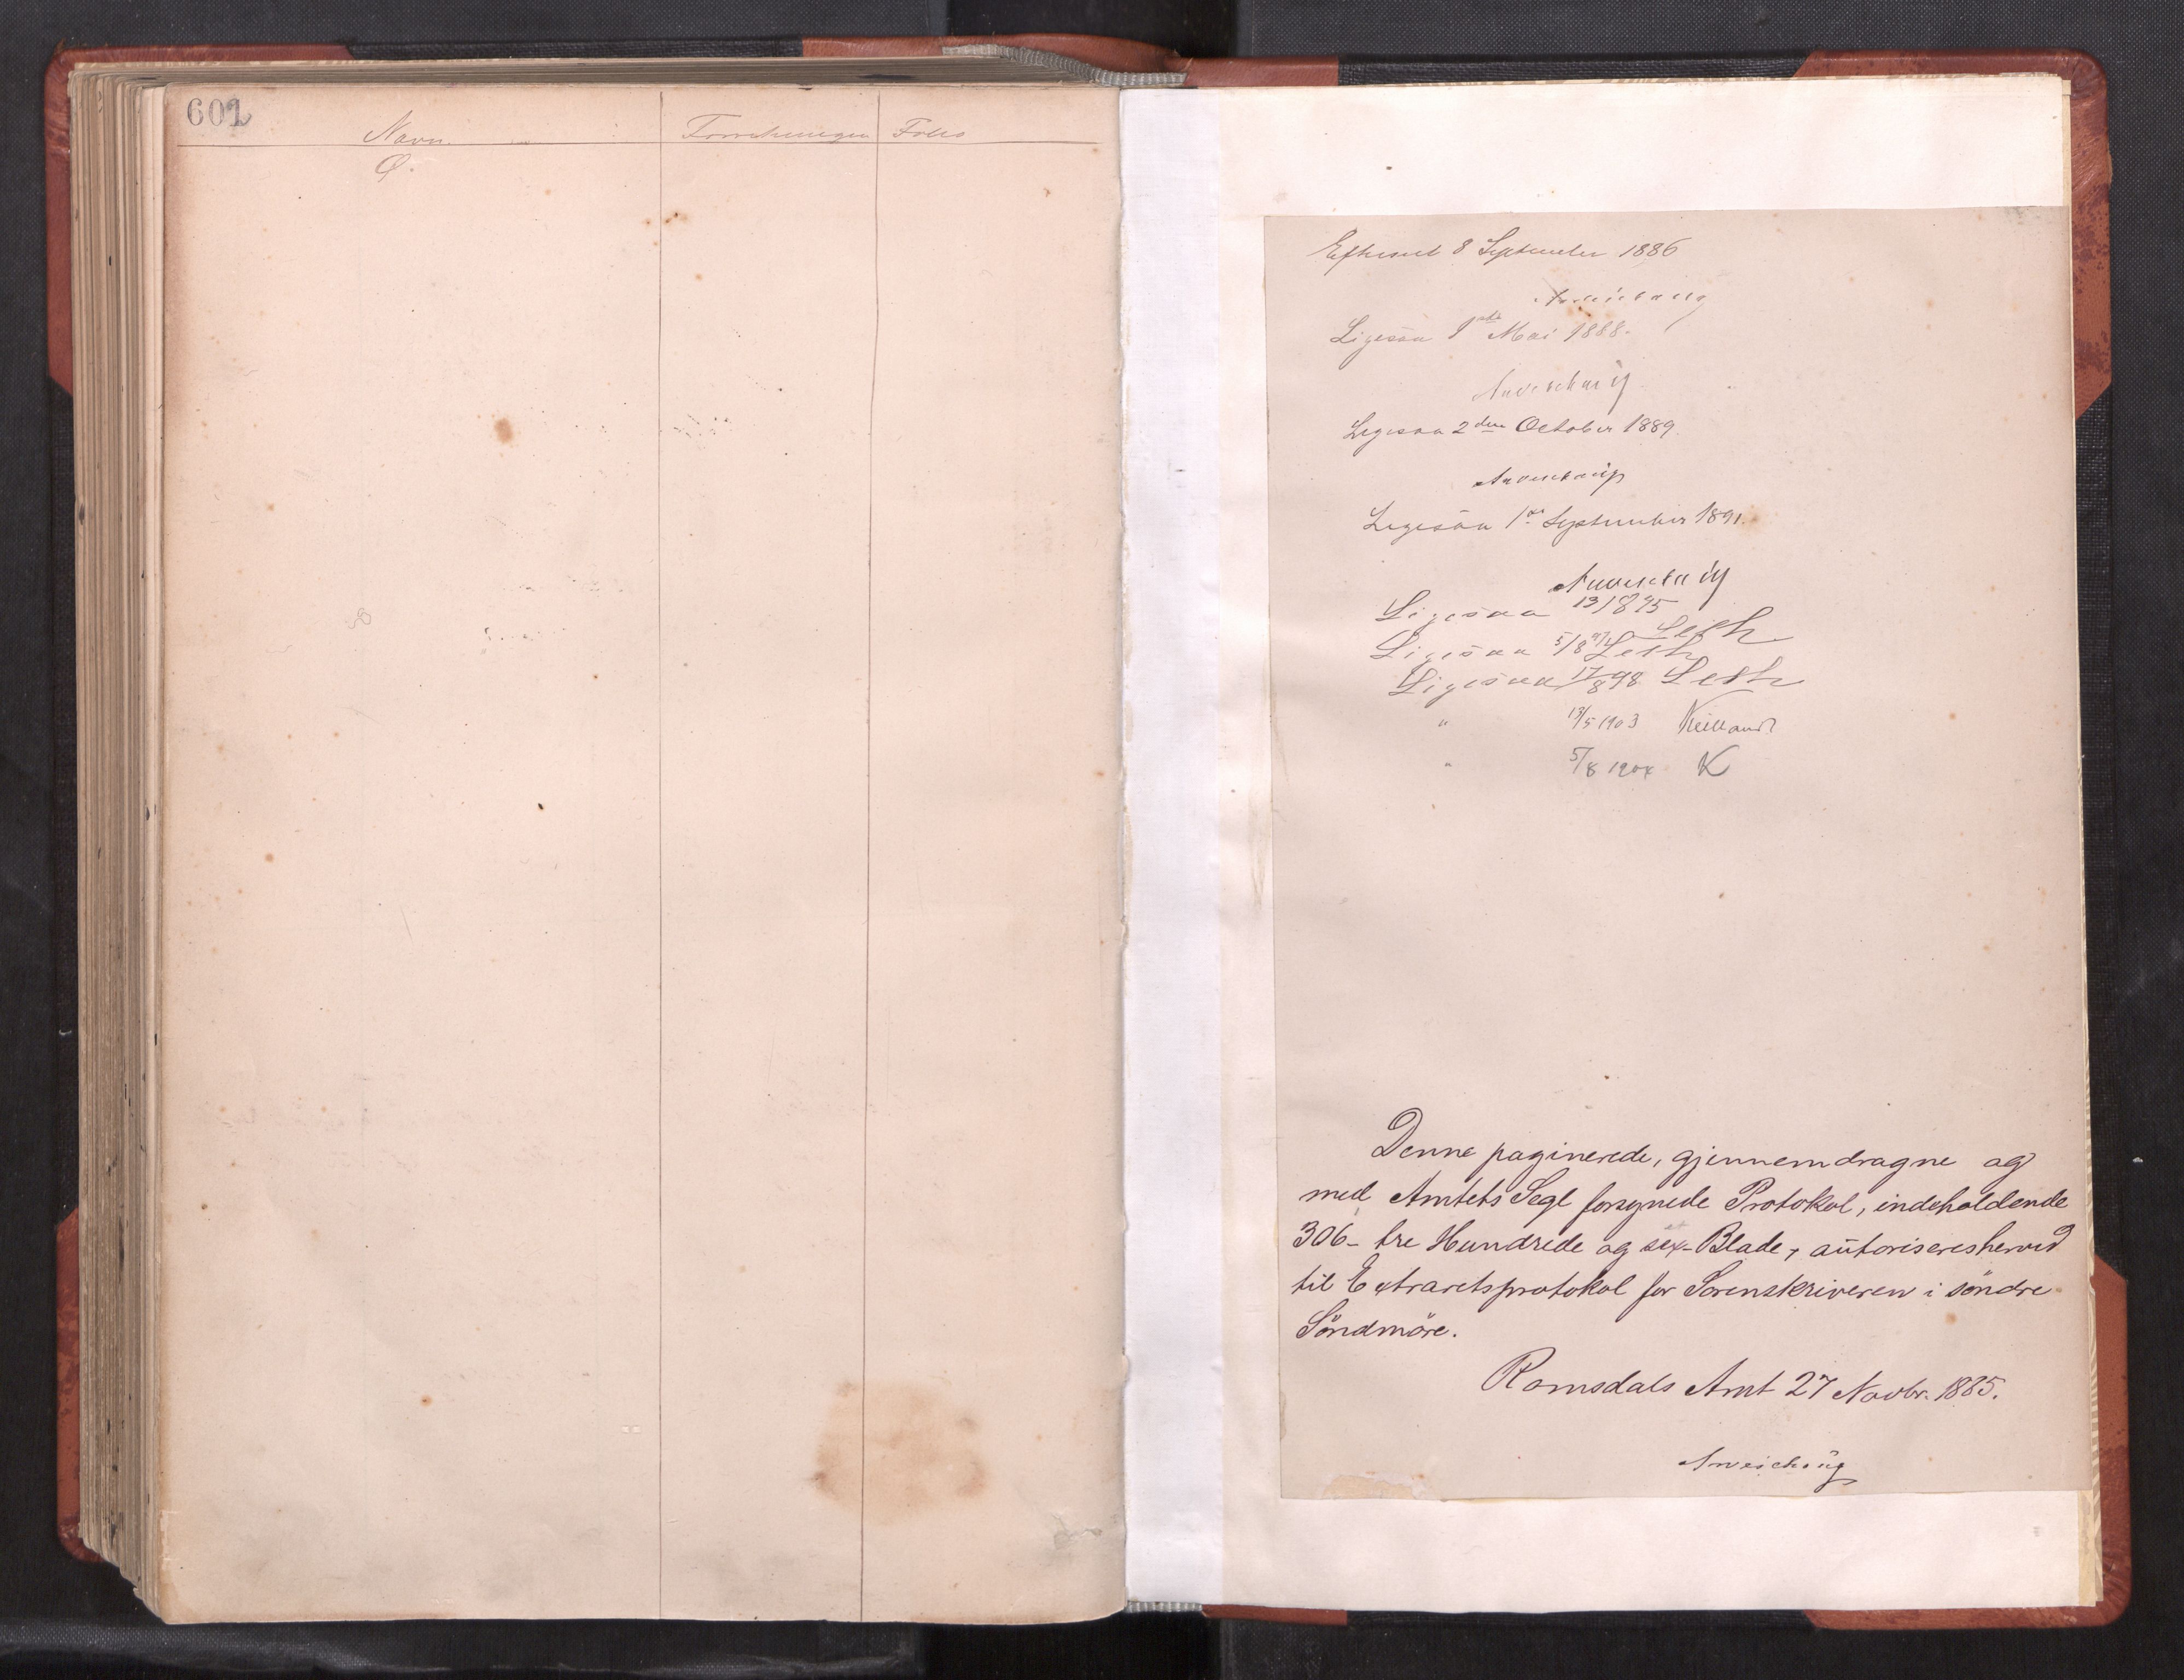 602
Navn. Forretningen Folio
Ø.
Efterseet 8 September 1886
Ligesaa 1ste Mai 1888.
Ligesaa 2den October 1889.
Ligesaa 1ste September 1891.
Ligesaa 13/8 95
Leth
Ligesaa 5/8 97 Leth
Ligesaa 17/8 98 Leth
" 13/5 1903 Kielland
" 5/8 1904 K
Denne paginerede, gjennemdragne og
med Amtets Segl forsynede Protokol, indeholdende
306 - tre Hundrede og sex - Blade, autoriseres herved
til Extraretsprotokol for Sorenskriveren i söndre
Söndmöre.
Romsdals Amt 27 Novbr. 1885.